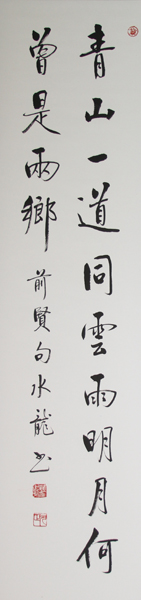 青山一道同雲雨明月何
曾是兩鄉
前賢句水龍书